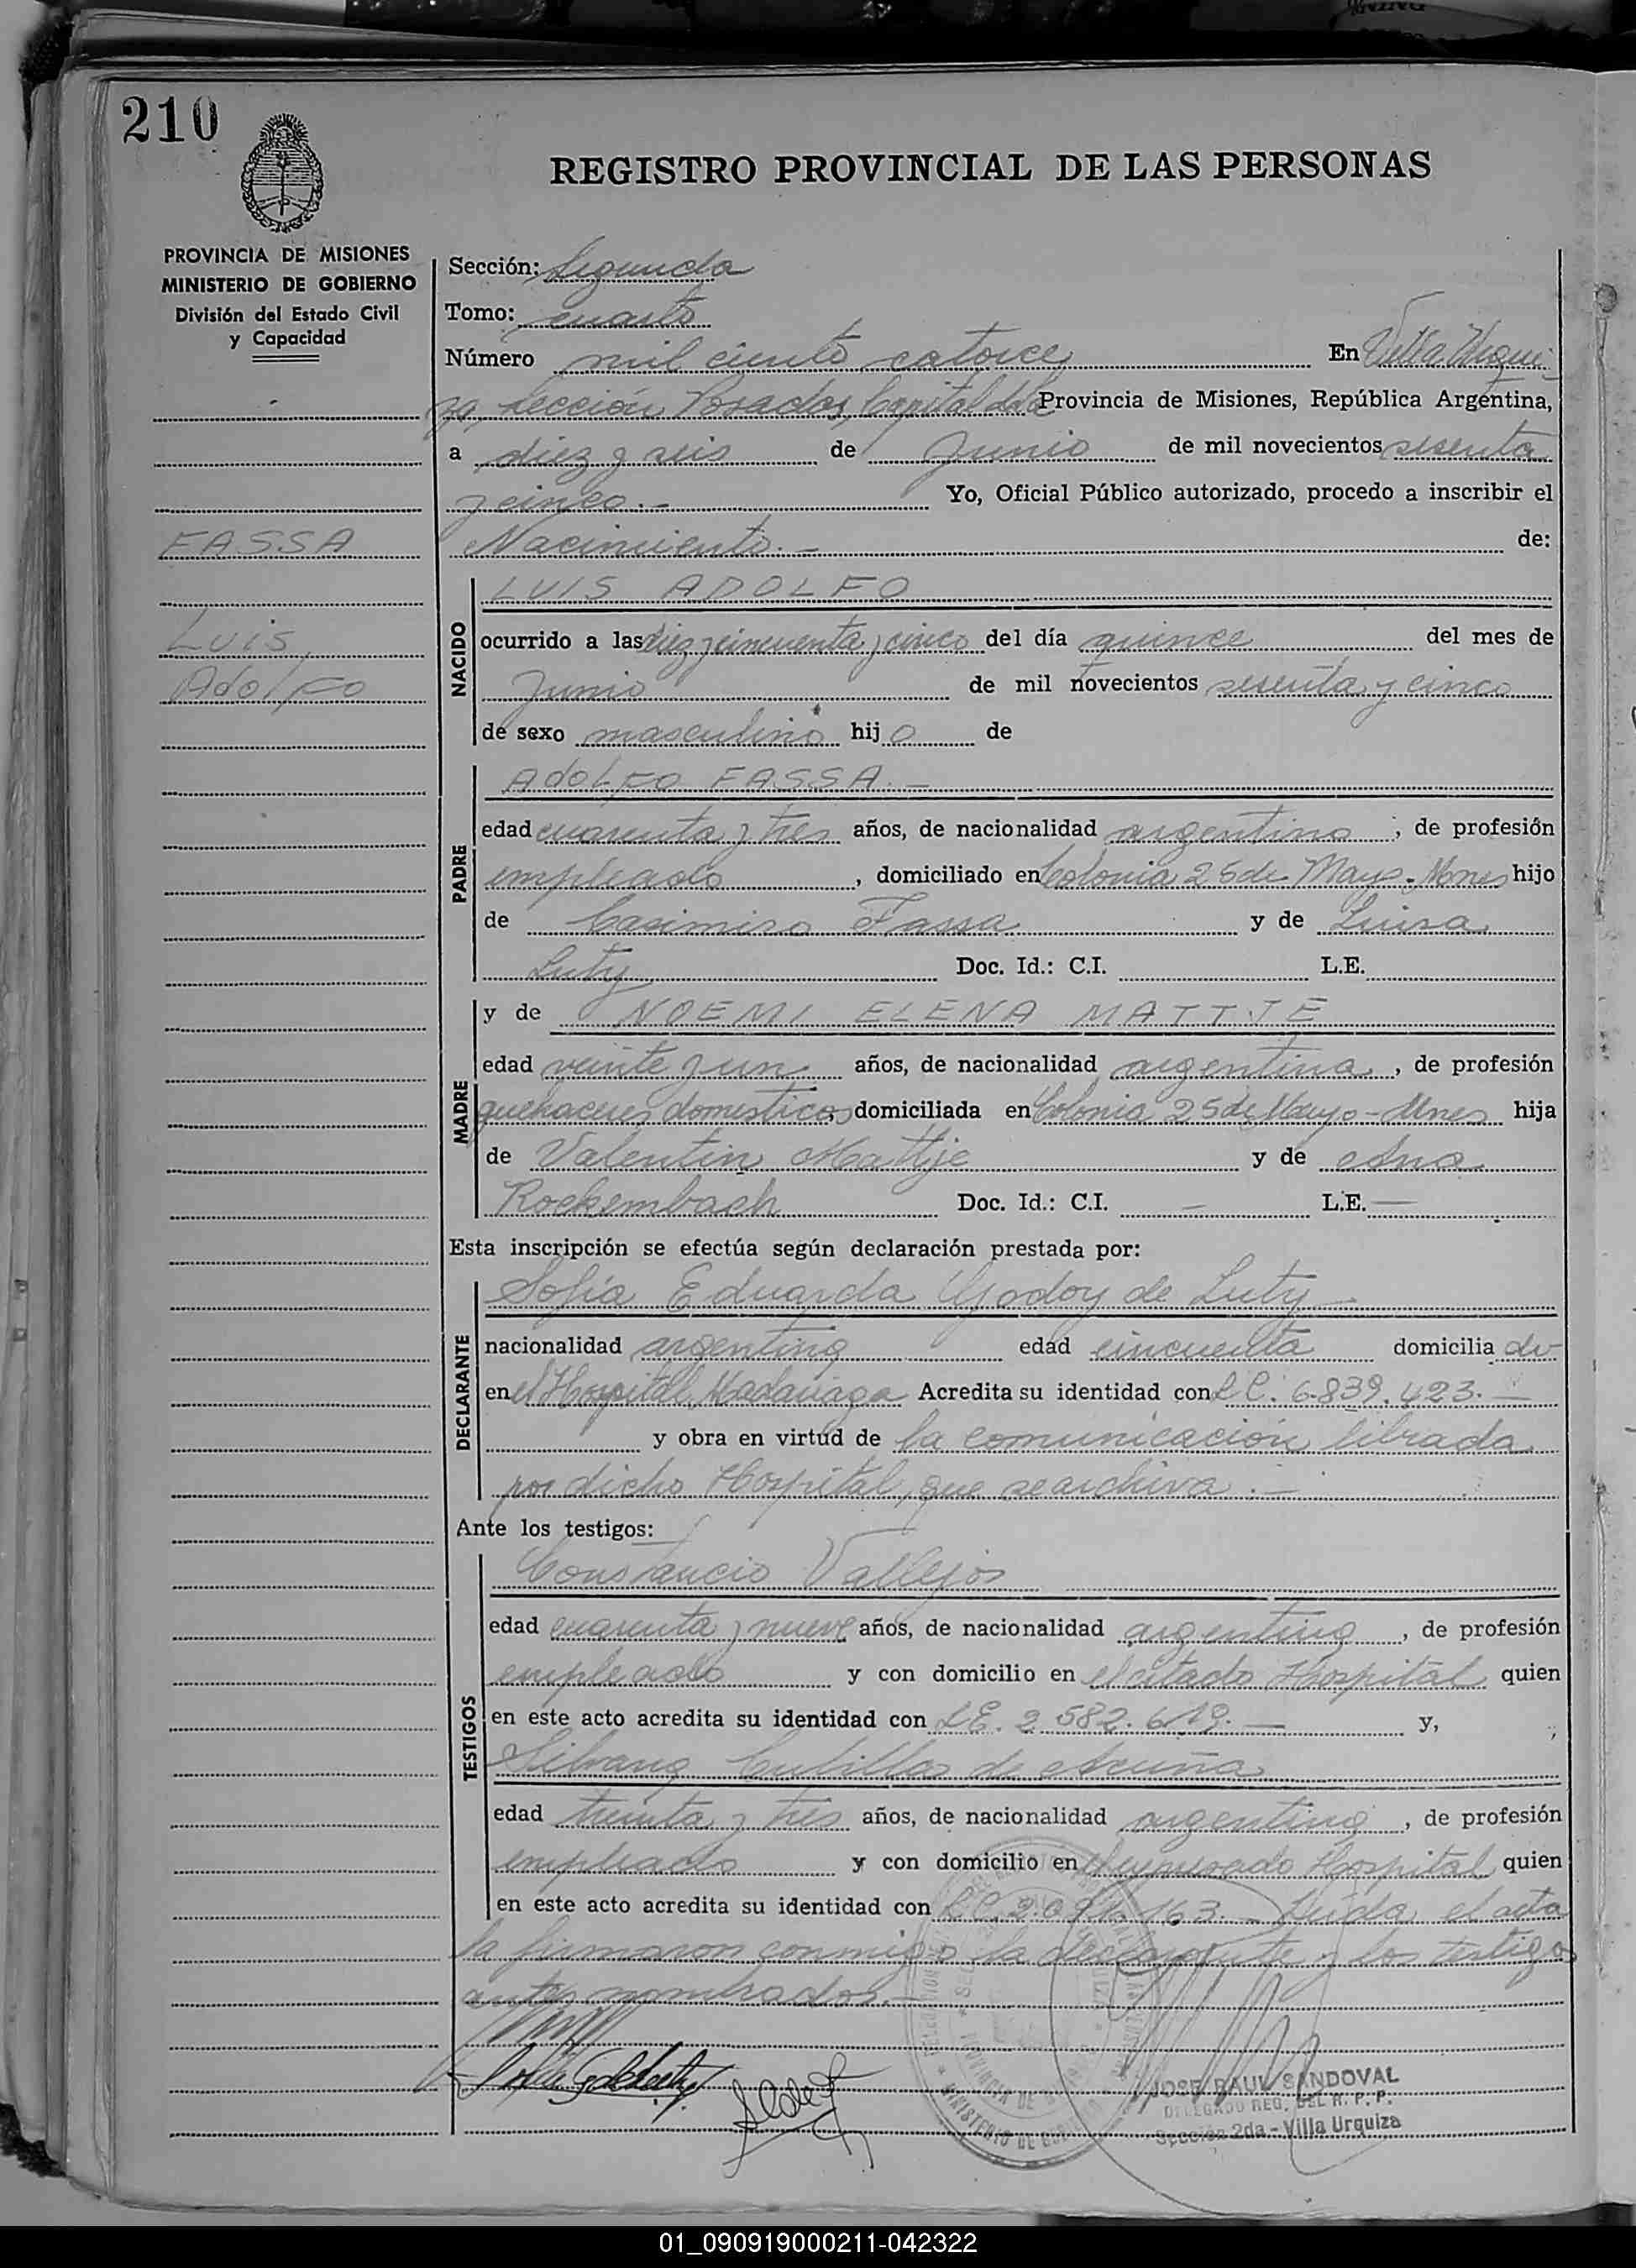 210
REGISTRO PROVINCIAL DE LAS PERSONAS
PROVINCIA DE MISIONES
MINISTERIO DE GOBIERNO
División del Estado Civil
y Capacidad
FASSA
Luis
Adolfo
Sección: Segunda
Tomo: cuarto
Número mil ciento catorce En Villa Urqui-
za, Sección Posadas, Capital de la Provincia de Misiones, República Argentina,
a diez y seis de Junio de mil novecientos sesenta
y cinco.- Yo, Oficial Público autorizado, procedo a inscribir el
Nacimiento.- de:
NACIDO
LUIS ADOLFO
ocurrido a las diez y cincuenta y cinco del día quince del mes de
Junio de mil novecientos sesenta y cinco
de sexo masculino hijo de
PADRE
Adolfo FASSA.-
edad cuarenta y tres años, de nacionalidad argentina, de profesión
empleado, domiciliado en Colonia 25 de Mayo-Mnes hijo
de Casimiro Fassa y de Luisa
Luty Doc. Id.: C.I. L.E.
MADRE
y de NOEMI ELENA MATTJE
edad veinte y un años, de nacionalidad argentina, de profesión
quehaceres domesticos domiciliada en Colonia 25 de Mayo-Mnes hija
de Valentin Mattje y de Ana
Rockembach Doc. Id.: C.I. — L.E. —
Esta inscripción se efectúa según declaración prestada por:
DECLARANTE
Sofía Eduarda Godoy de Luty
nacionalidad argentina edad cincuenta domicilia da
en el Hospital Madariaga Acredita su identidad con L.C. 6.839.423.-
y obra en virtud de la comunicación librada
por dicho Hospital, que se archiva.-
Ante los testigos:
TESTIGOS
Constancio Vallejos
edad cuarenta y nueve años, de nacionalidad argentina, de profesión
empleado y con domicilio en el citado Hospital quien
en este acto acredita su identidad con L.E. 2.582.619.- y,
de Acuña
edad treinta y tres años, de nacionalidad argentina, de profesión
empleada y con domicilio en el Hospital quien
en este acto acredita su identidad con L.C. 163.- Leída el acta
la firmaron conmigo la declarante y los testigos
antes nombrados.-
JOSE RAUL SANDOVAL
DELEGADO REG. DEL R. P. P.
Sección 2da - Villa Urquiza
01_090919000211-042322